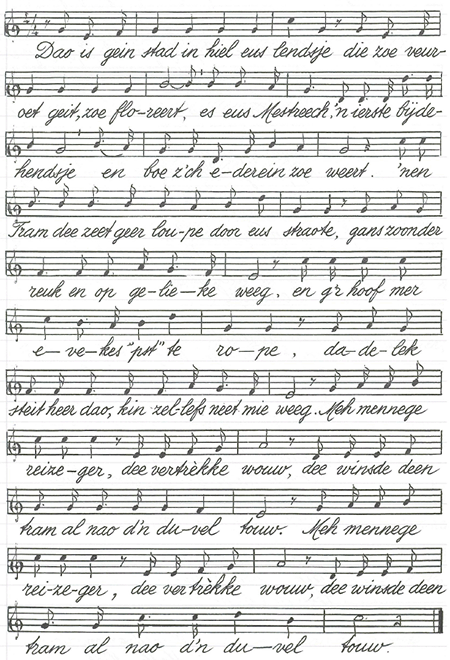 Dao is gein stad in hiel eus lendsje die zoe veur-
oet geit, zoe flo-reert, es eus Mestreech, 'n ierste bijde-
hendsje en boe z'ch e-derein zoe weert. 'nen
Tram dee zeet geer lou-pe door eus straote, gans zoonder
reuk en op ge-lie-ke weeg, en g'r hoof mer
e-ve-kes "pst" te ro-pe, da-de-lek
steit heer dao, kin zel-lefs neet mie weeg. Meh mennege
reize-ger, dee vertrèkke wouw, dee winsde deen
tram al nao d'n du-vel touw. Meh mennege
rei-ze-ger, dee vertrèkke wouw, dee winsde deen
tram al nao d'n du-vel touw.